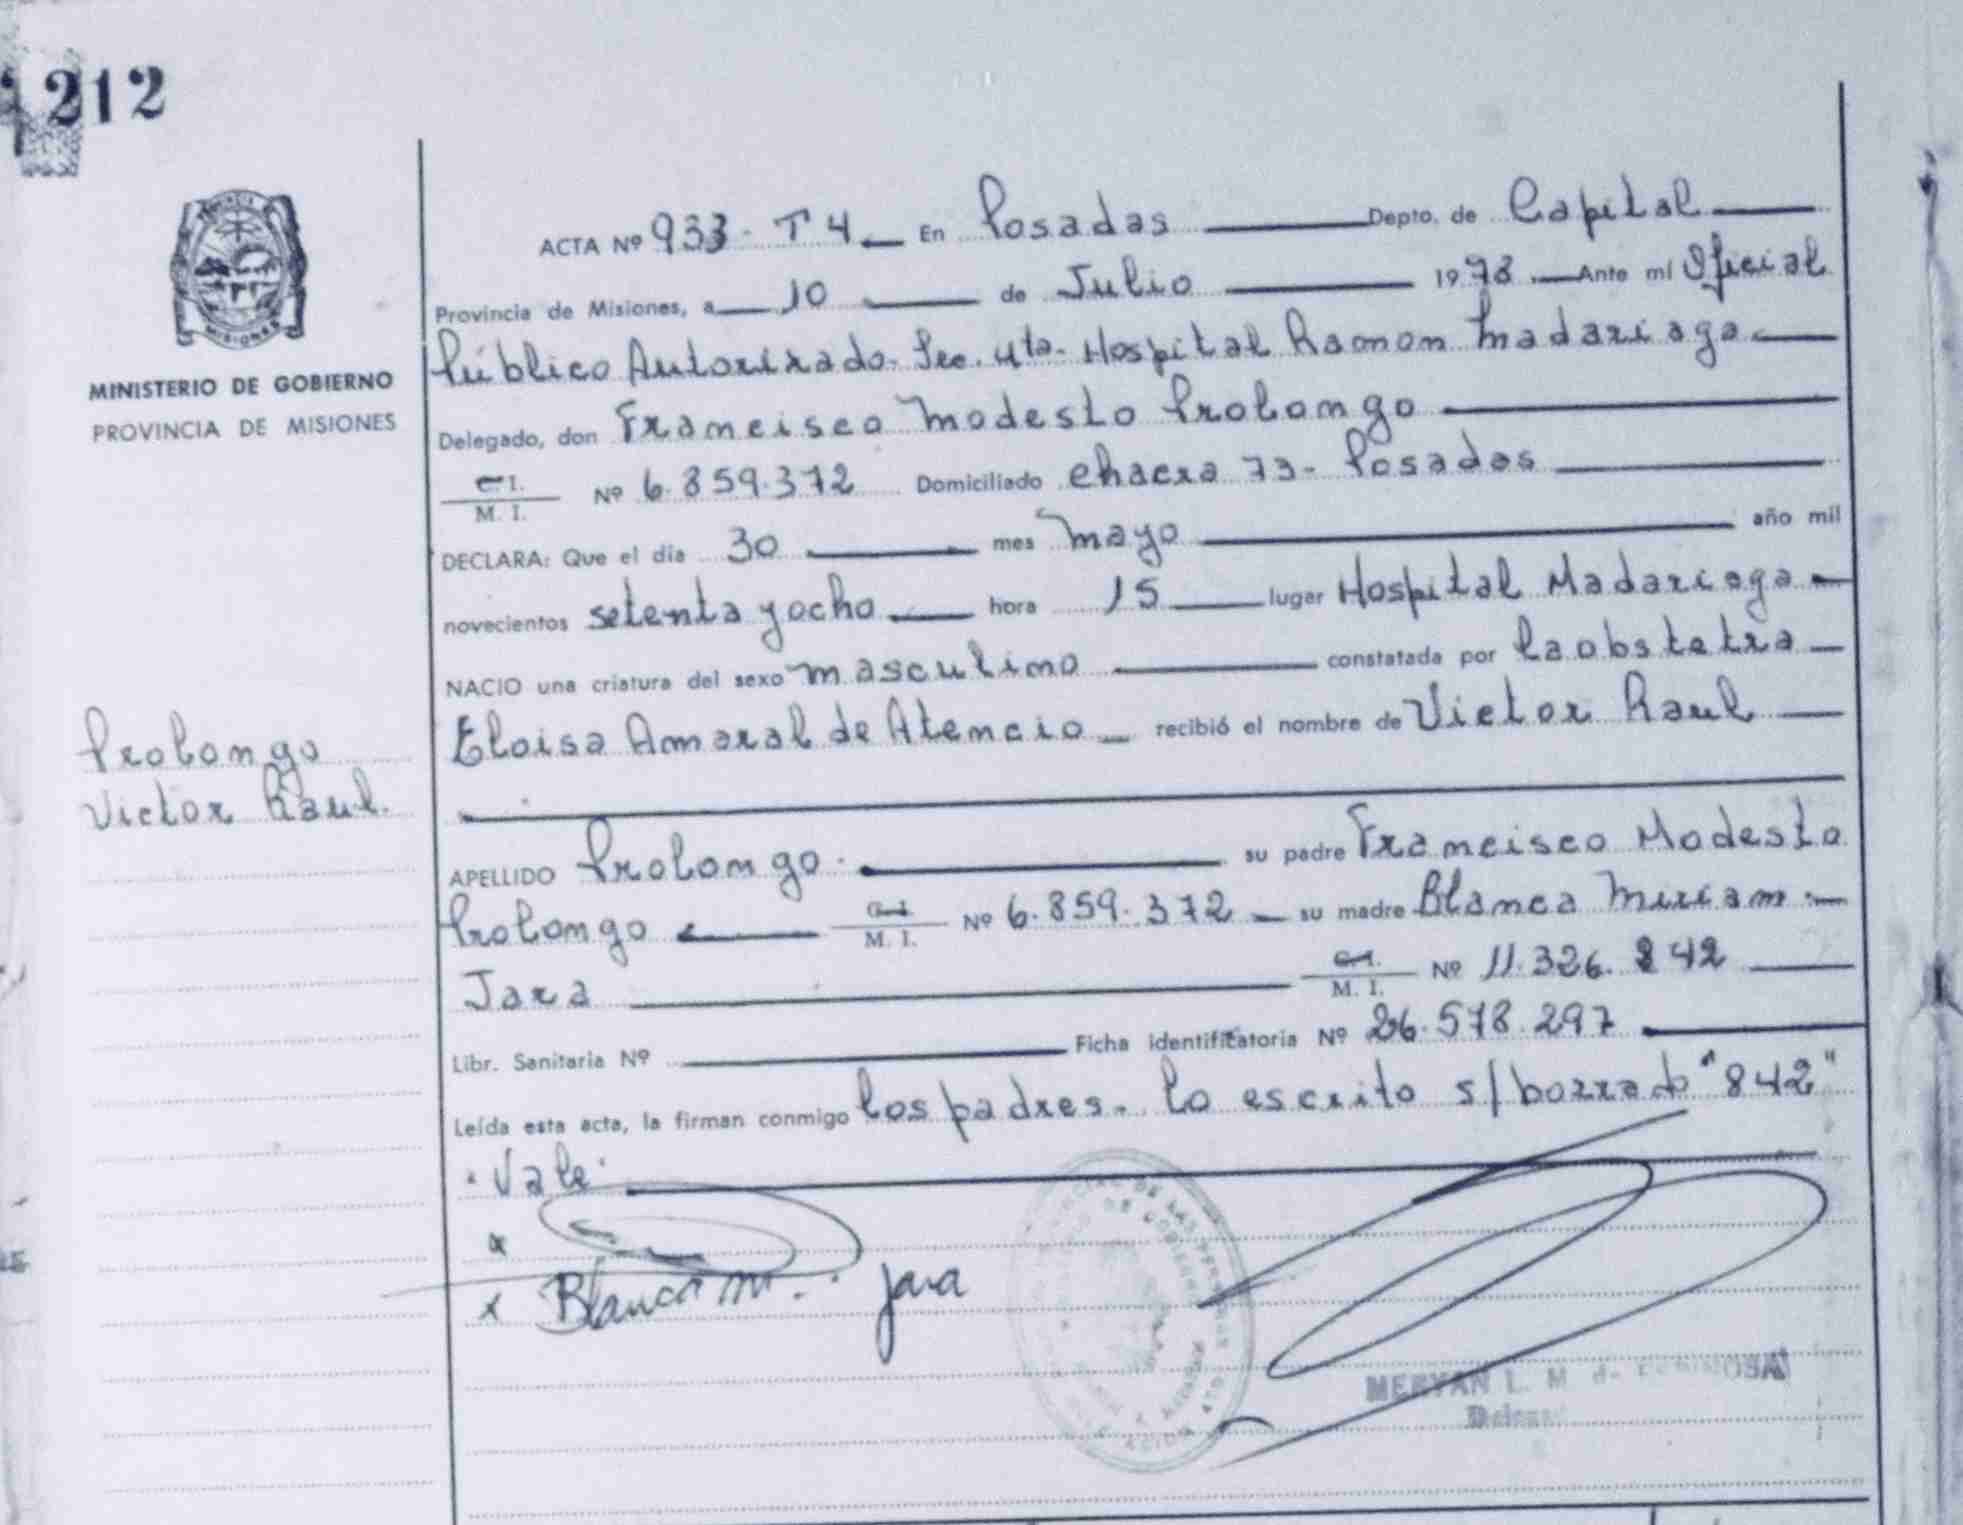 212
MINISTERIO DE GOBIERNO
PROVINCIA DE MISIONES
ACTA Nº 933 - T 4 En Posadas Depto. de Capital
Provincia de Misiones, a 10 de Julio 1978 Ante mí Oficial
Público Autorizado. Sec. 4ta. Hospital Ramon Madariaga
Delegado, don Francisco Modesto Prolongo
C.I. M. I. Nº 6.859.372 Domiciliado chacra 73 - Posadas
DECLARA: Que el día 30 mes mayo año mil
novecientos setenta y ocho hora 15 lugar Hospital Madariaga
NACIO una criatura del sexo masculino constatada por la obstetra
Eloisa Amaral de Atencio recibió el nombre de Victor Raul
Prolongo
Victor Raul.
APELLIDO Prolongo su padre Francisco Modesto
Prolongo C.I. M. I. Nº 6.859.372 su madre Blanca Miriam
Jara C.I. M. I. Nº 11.326.842
Libr. Sanitaria Nº Ficha identificatoria Nº 26.578.297
Leída esta acta, la firman conmigo los padres. Lo escrito s/borrado "842"
Vale
x
x Blanca M. Jara
MERYAN L. M